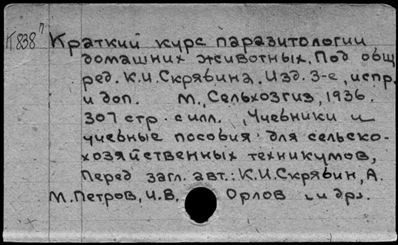 К 838⁷ Краткий курс паразитологии
домашних животных. Под общ
ред. К.И.Скрябина. Изд. 3-е, испр.
и доп. М., Сельхозгиз, 1936.
307 стр. с илл. Учебники и
учебные пособия для сельско-
хозяйственных техникумов,
Перед загл. авт.: К.И.Скрябин, А.
М.Петров, И.В. Орлов и др.